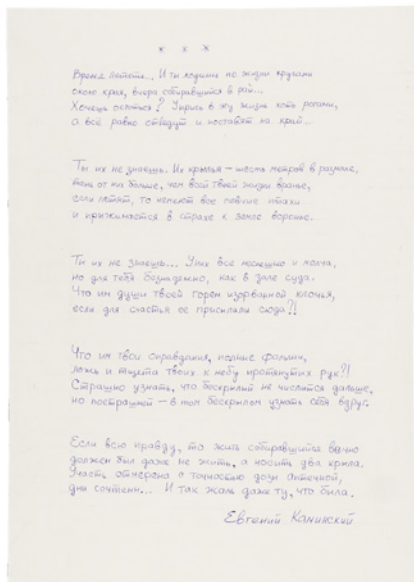 * * *
Время лететь... И ты ходишь по жизни кругами
около края, вчера собиравшийся в рай...
Хочешь остаться? Упрись в эту жизнь хоть рогами,
а всё равно отведут и поставят на край...
Ты их не знаешь. Их крылья – шесть метров в размахе,
тень от них больше, чем всей твоей жизни враньё,
если летят, то немеют все певчие птахи
и прижимается в страхе к земле вороньё.
Ты их не знаешь... У них все неспешно и молча,
но для тебя безнадежно, как в зале суда.
Что им души твоей горем изорванной клочья,
если для счастья ее присылали сюда?!
Что им твои оправдания, полные фальши,
ложь и тщета твоих к небу протянутых рук?!
Страшно узнать, что бескрылый не числится дальше,
но пострашней – в том бескрылом узнать себя вдруг.
Если всю правду, то жить собиравшийся вечно
должен был даже не жить, а носить два крыла.
Участь отмерена с точностью дозы аптечной,
дни сочтены... И так жаль даже ту, что была.
Евгений Каминский